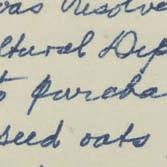 was resolve
ltural Dep
to purcha
seed oats